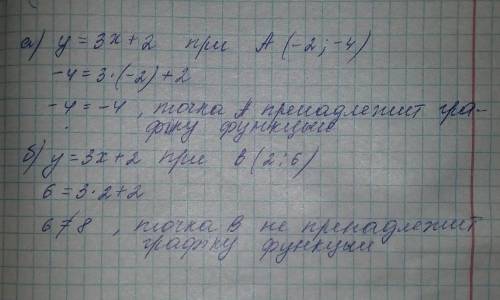 а) y = 3x + 2 при A (-2; -4)
-4 = 3·(-2) + 2
-4 = -4, точка A пренадлежит гра-
фику функцые
б) y = 3x + 2 при B (2; 6)
6 = 3·2 + 2
6 ≠ 8, точка B не пренадлежит
графику функцые